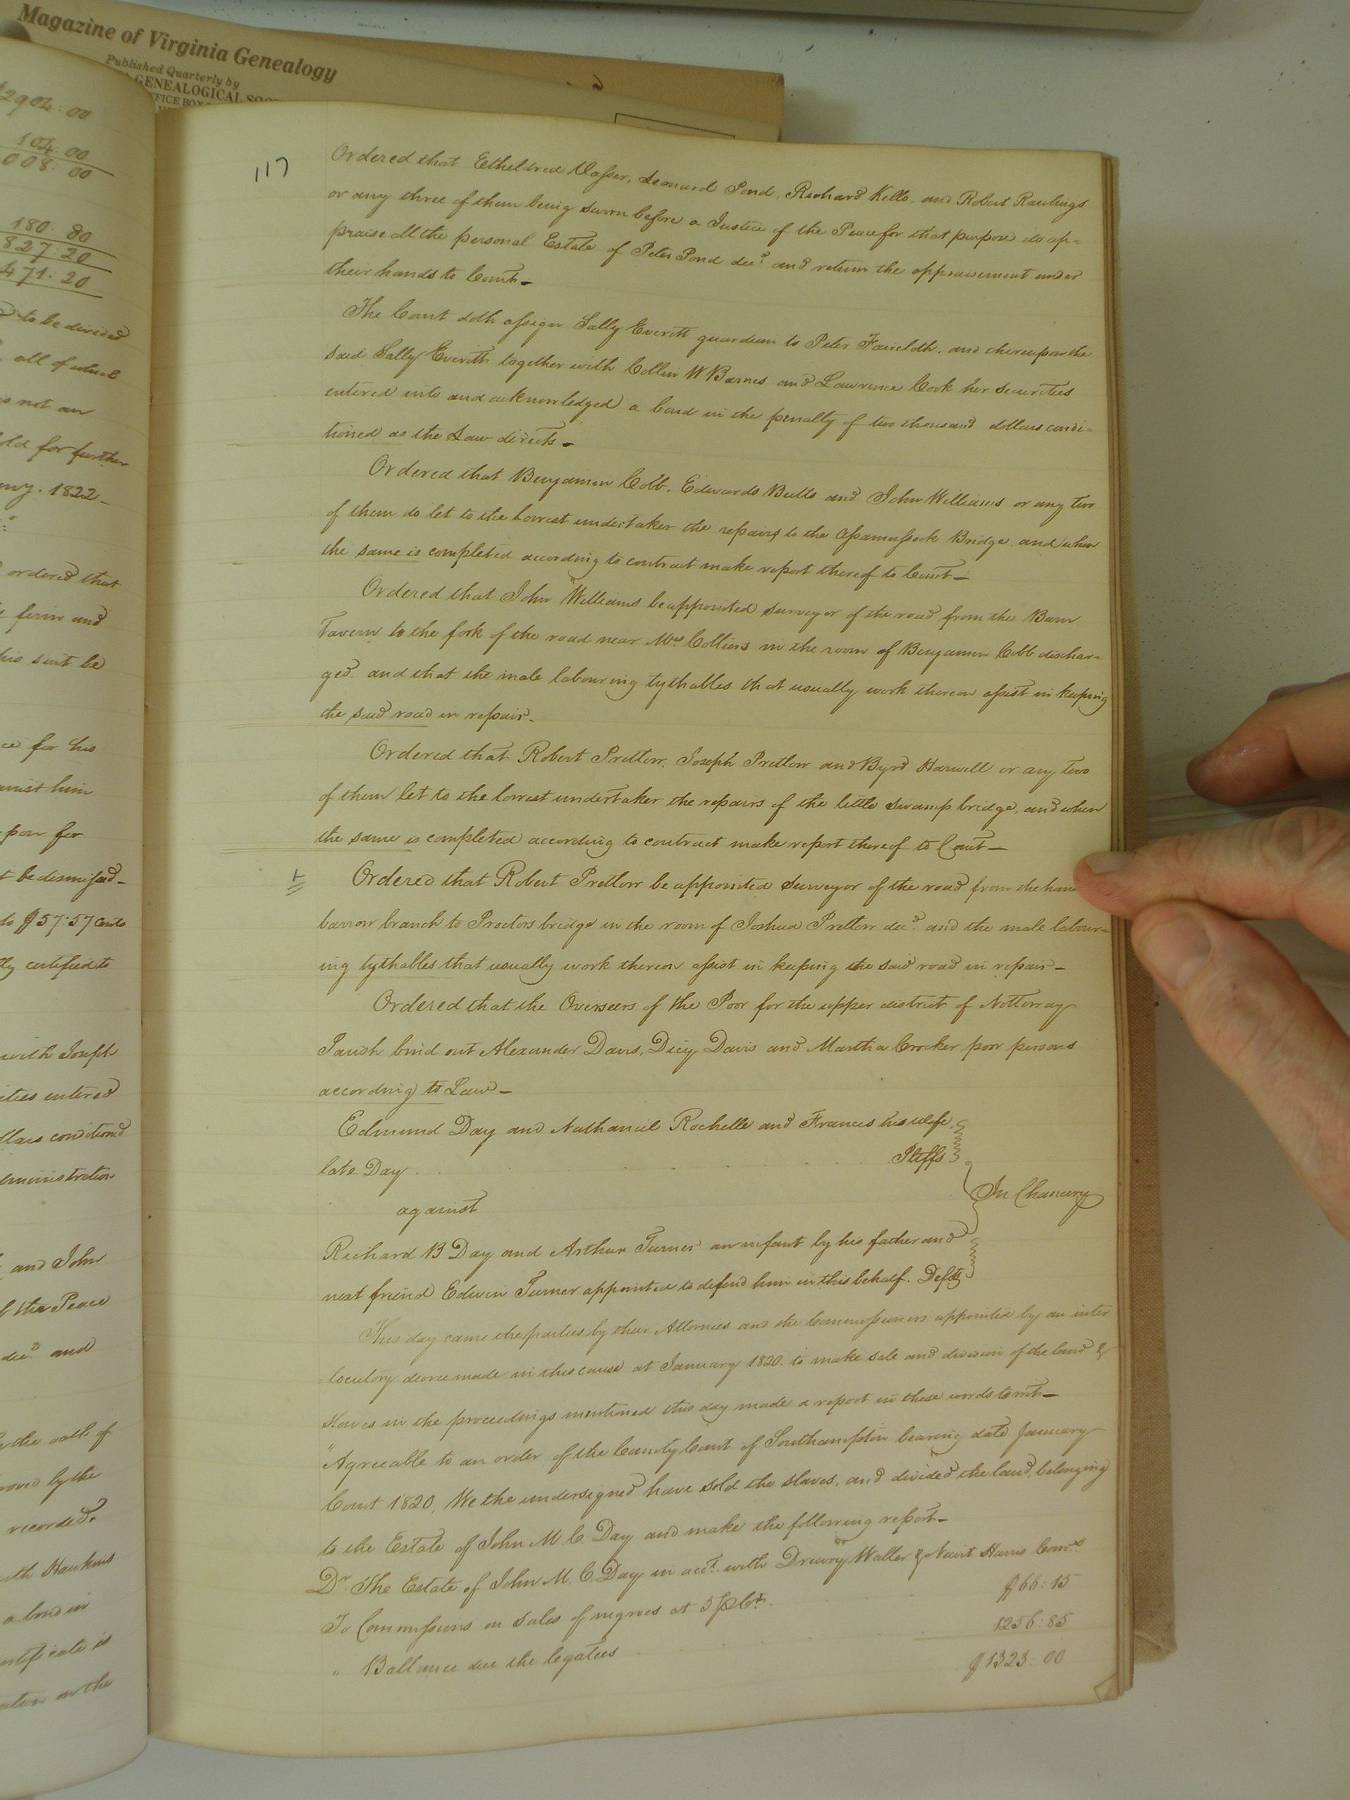 Magazine of Virginia Genealogy
Published Quarterly by
GENEALOGICAL SOC
2904:00
104:00
008:00
180:80
827:20
471:20
to be divided
all of which
is not an
old for further
1822
ordered that
ferm and
his suit be
ce for his
against him
pon for
t be dismissed
to $57:57 Cents
tly certified to
with Joseph
ities entered
llars conditioned
administration
and John
of the Peace
decd and
the oath of
roved by the
recorded.
th Hawkins
a bond in
certificate is
on the
117
Ordered that Etheldred Vasser, Leonard Pond, Richard Kello, and Robert Rawlings
or any three of them being sworn before a Justice of the Peace for that purpose do ap=
praise all the personal Estate of Peter Pond decd and return the appraisement under
their hands to Court
The Court doth assign Sally Everitt guardian to Peter Faircloth, and thereupon the
said Sally Everitt together with Collin W Barnes and Lawrence Cook her securities
entered into and acknowledged a bond in the penalty of two thousand dollars condi-
tioned as the Law directs
Ordered that Benjamin Cobb, Edwards Butts and John Williams or any two
of them do let to the lowest undertaker the repairs to the Assamussock Bridge and when
the same is completed according to contract make report thereof to Court
Ordered that John Williams be appointed surveyor of the road from the Barn
Tavern to the fork of the road near Mrs Collins in the room of Benjamin Cobb dischar-
ged and that the male labouring tythables that usually work thereon assist in keeping
the said road in repair
Ordered that Robert Pretlow, Joseph Pretlow and Byrd Harwell or any two
of them let to the lowest undertaker the repairs of the little swamp bridge, and when
the same is completed according to contract make report thereof to Court
Ordered that Robert Pretlow be appointed surveyor of the road from the
barrow branch to Proctors bridge in the room of Joshua Pretlow decd and the male labour-
ing tythables that usually work thereon assist in keeping the said road in repair
Ordered that the Overseers of the Poor for the upper district of Nottoway
Parish bind out Alexander Davis, Dicy Davis and Martha Crocker poor persons
according to Law
Edmund Day and Nathaniel Rochelle and Frances his wife
late Day Pltffs
In Chancery
against
Richard B Day and Arthur Turner an infant by his father and
next friend Edwin Turner appointed to defend him in this behalf. Defts
This day came the parties by their Attornies and the Commissioners appointed by an inter
locutory decree made in this cause at January 1820 to make sale and division of the land &
slaves in the proceedings mentioned this day made a report in these words towit
"Agreeable to an order of the County Court of Southampton bearing date January
Court 1820, We the undersigned have sold the slaves, and divided the land, belonging
to the Estate of John M. C. Day and make the following report
Dr The Estate of John M. C. Day in acct. with Drewry Waller & Newit Harris Comrs
To Commissions on sales of negroes at 5 prCt. $66:15
" Ballance due the legatees 1256:85
$1323:00